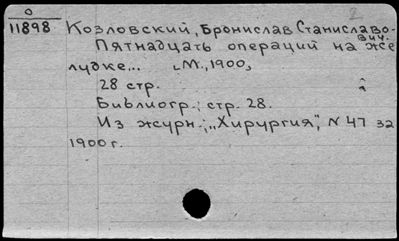 0
11898 Козловский, Бронислав Станиславо-
вич.
Пятнадцать операций на же
лудке... М., 1900,
28 стр.
Библиогр.; стр. 28.
Из журн.: „Хирургия", N 47 за
1900 г.